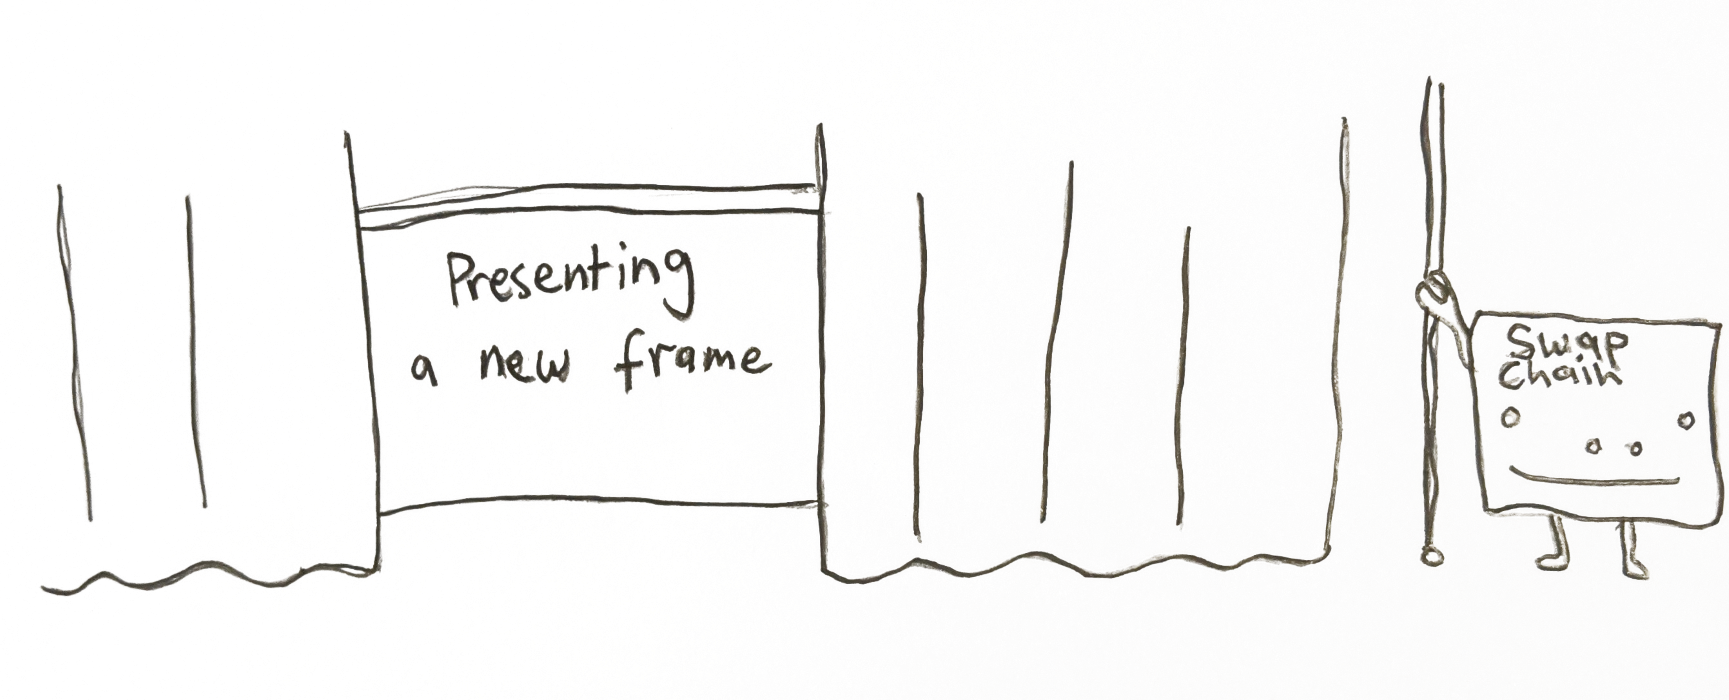 Presenting
a new frame
Swap
Chain